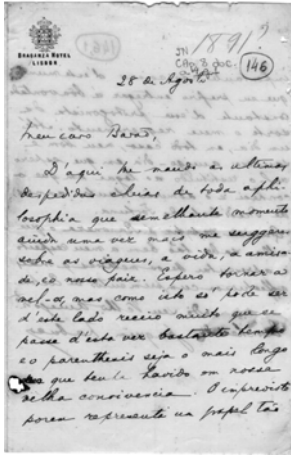 BRAGANZA HOTEL
LISBON
JN 1891?
CAP 3 doc.
146
28 de Agosto
Meu caro Barão,
D'aqui lhe mando as ultimas
despedidas cheias de toda a phi-
losophia que semelhante momento
ainda uma vez mais me suggere
sobre as viagens, a vida, a amisa-
de, e o nosso paiz. Espero tornar a
vel-o, mas como isto só pode ser
d'este lado receio muito que se
passe d'esta vez bastante tempo
e o parenthesis seja o mais longo
que tenha havido em nossa
velha convivencia. O imprevisto
porem representa um papel tão